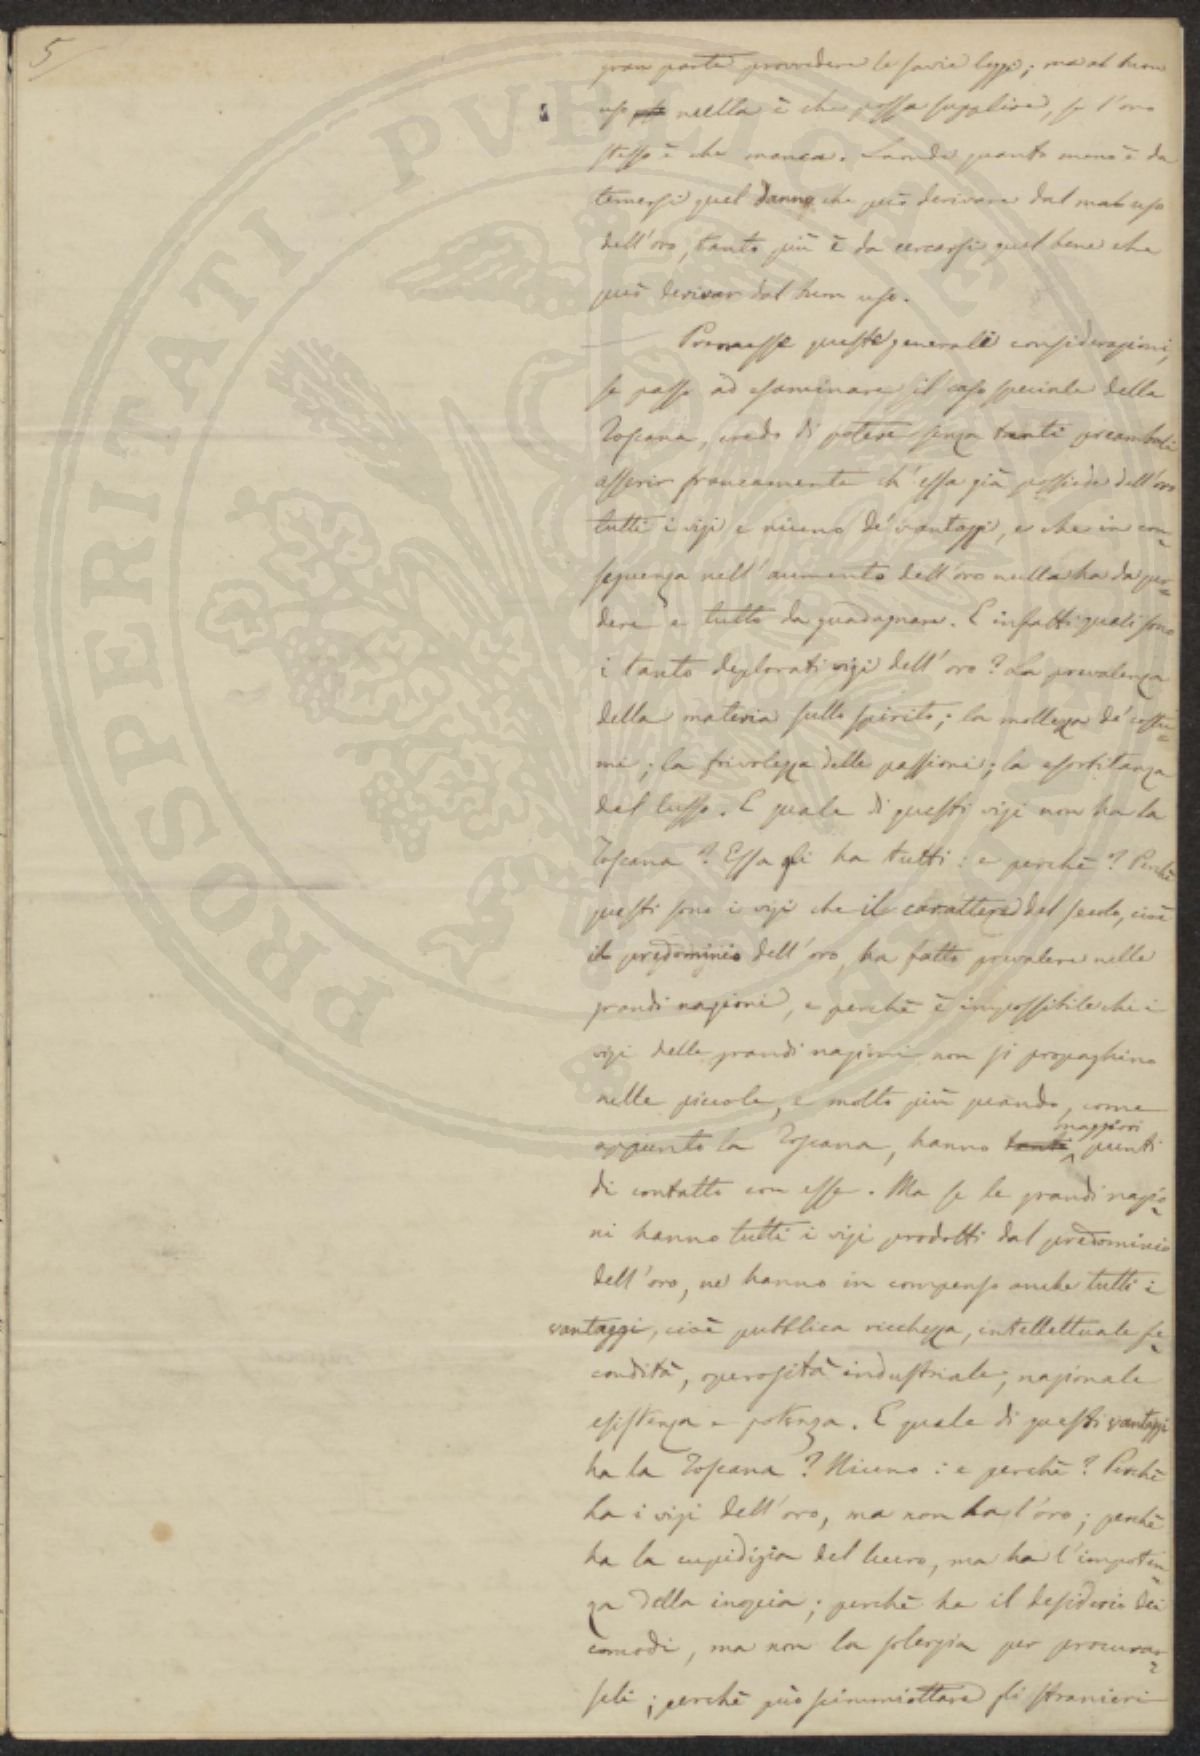 5
gran parte provvedere le savie leggi; ma al buon
uso nulla è che possa supplire, se l'oro
stesso è che manca. Laonde quanto meno è da
temersi quel danno che può derivare dal mal uso
dell'oro, tanto più è da cercarsi quel bene che
può derivar dal buon uso.
Premesse queste generali considerazioni,
se passo ad esaminare il caso speciale della
Toscana, credo di potere senza tanti preamboli
asserir francamente ch'essa già possiede dell'oro
tutti i vizi e niuno de' vantaggi, e che in con=
seguenza nell'aumento dell'oro nulla ha da per=
dere e tutto da guadagnare. E infatti quali sono
i tanto deplorati vizi dell'oro? La prevalenza
della materia sullo spirito; la mollezza de' costu=
mi; la frivolezza delle passioni; la esorbitanza
del lusso. E quale di questi vizi non ha la
Toscana? Essa gli ha tutti: e perchè? Perchè
questi sono i vizi che il carattere del secolo, cioè
il predominio dell'oro, ha fatto prevalere nelle
grandi nazioni, e perchè è impossibile che i
vizi delle grandi nazioni non si propaghino
nelle piccole, e molto più quando, come
maggiori
appunto la Toscana, hanno tanti punti
di contatto con esse. Ma se le grandi nazio=
ni hanno tutti i vizi prodotti dal predominio
dell'oro, ne hanno in compenso anche tutti i
vantaggi, cioè pubblica ricchezza, intellettuale fe=
condità, operosità industriale, nazionale
esistenza e potenza. E quale di questi vantaggi
ha la Toscana? Niuno: e perchè? Perchè
ha i vizi dell'oro, ma non ha l'oro; perchè
ha la cupidigia del lucro, ma ha l'impoten=
za della inopia; perchè ha il desiderio dei
comodi, ma non la solerzia per procurar=
seli; perchè può scimmiottare gli stranieri
PROSPERITATI PVBLICAE